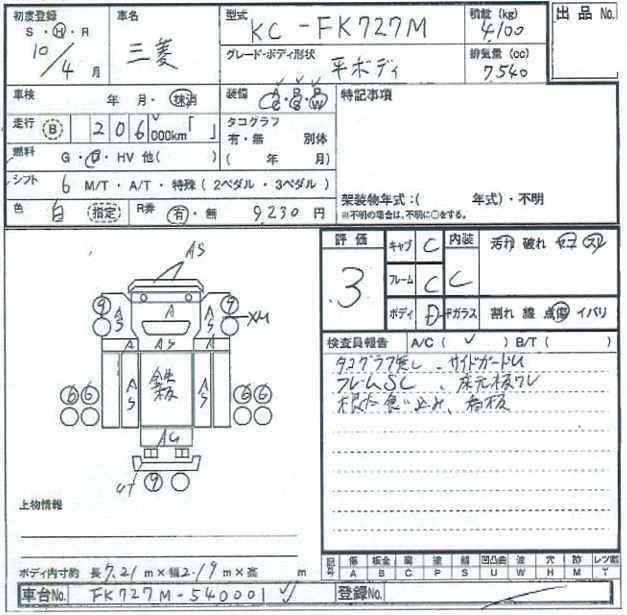 初度登録
S・H・R
10/4月
車名
三菱
型式
KC-FK727M
グレード・ボディ形状
平ボディ
積載(kg)
4100
排気量(cc)
7540
出品No.
車検 年 月・抹消
装備 A・P・P
C・S・W
特記事項
走行 B 206,000km「 」
タコグラフ
有・無 別体
( 年 月)
燃料 G・D・HV 他( )
シフト 6 M/T・A/T・特殊(2ペダル・3ペダル)
色 白 指定 R券 有・無 9230円
架装物年式:( 年式)・不明
※不明の場合は、不明に○をする。
評価
3
キャブ C
内装 C
汚れ 破れ セコ スレ
フレーム C
ボディ D
Fガラス 割れ 線 点傷 イバリ
検査員報告 A/C( ✓ ) B/T( )
タコグラフ無し、サイドガードU
フレームSC、床元板ワレ
根太食い込み、
AS
9 9
AS A AS
XM
A AS A
6 6 AS 鉄板 AS 6 6
AU
UT 9
上物情報
ボディ内寸約 長7.21m×幅2.19m×高 m
記号 傷 板金 腐 塗 錆 凹凸曲 波 穴 跡 レツ断
A B C P S U W H M T
車台No. FK727M-540001
登録No.